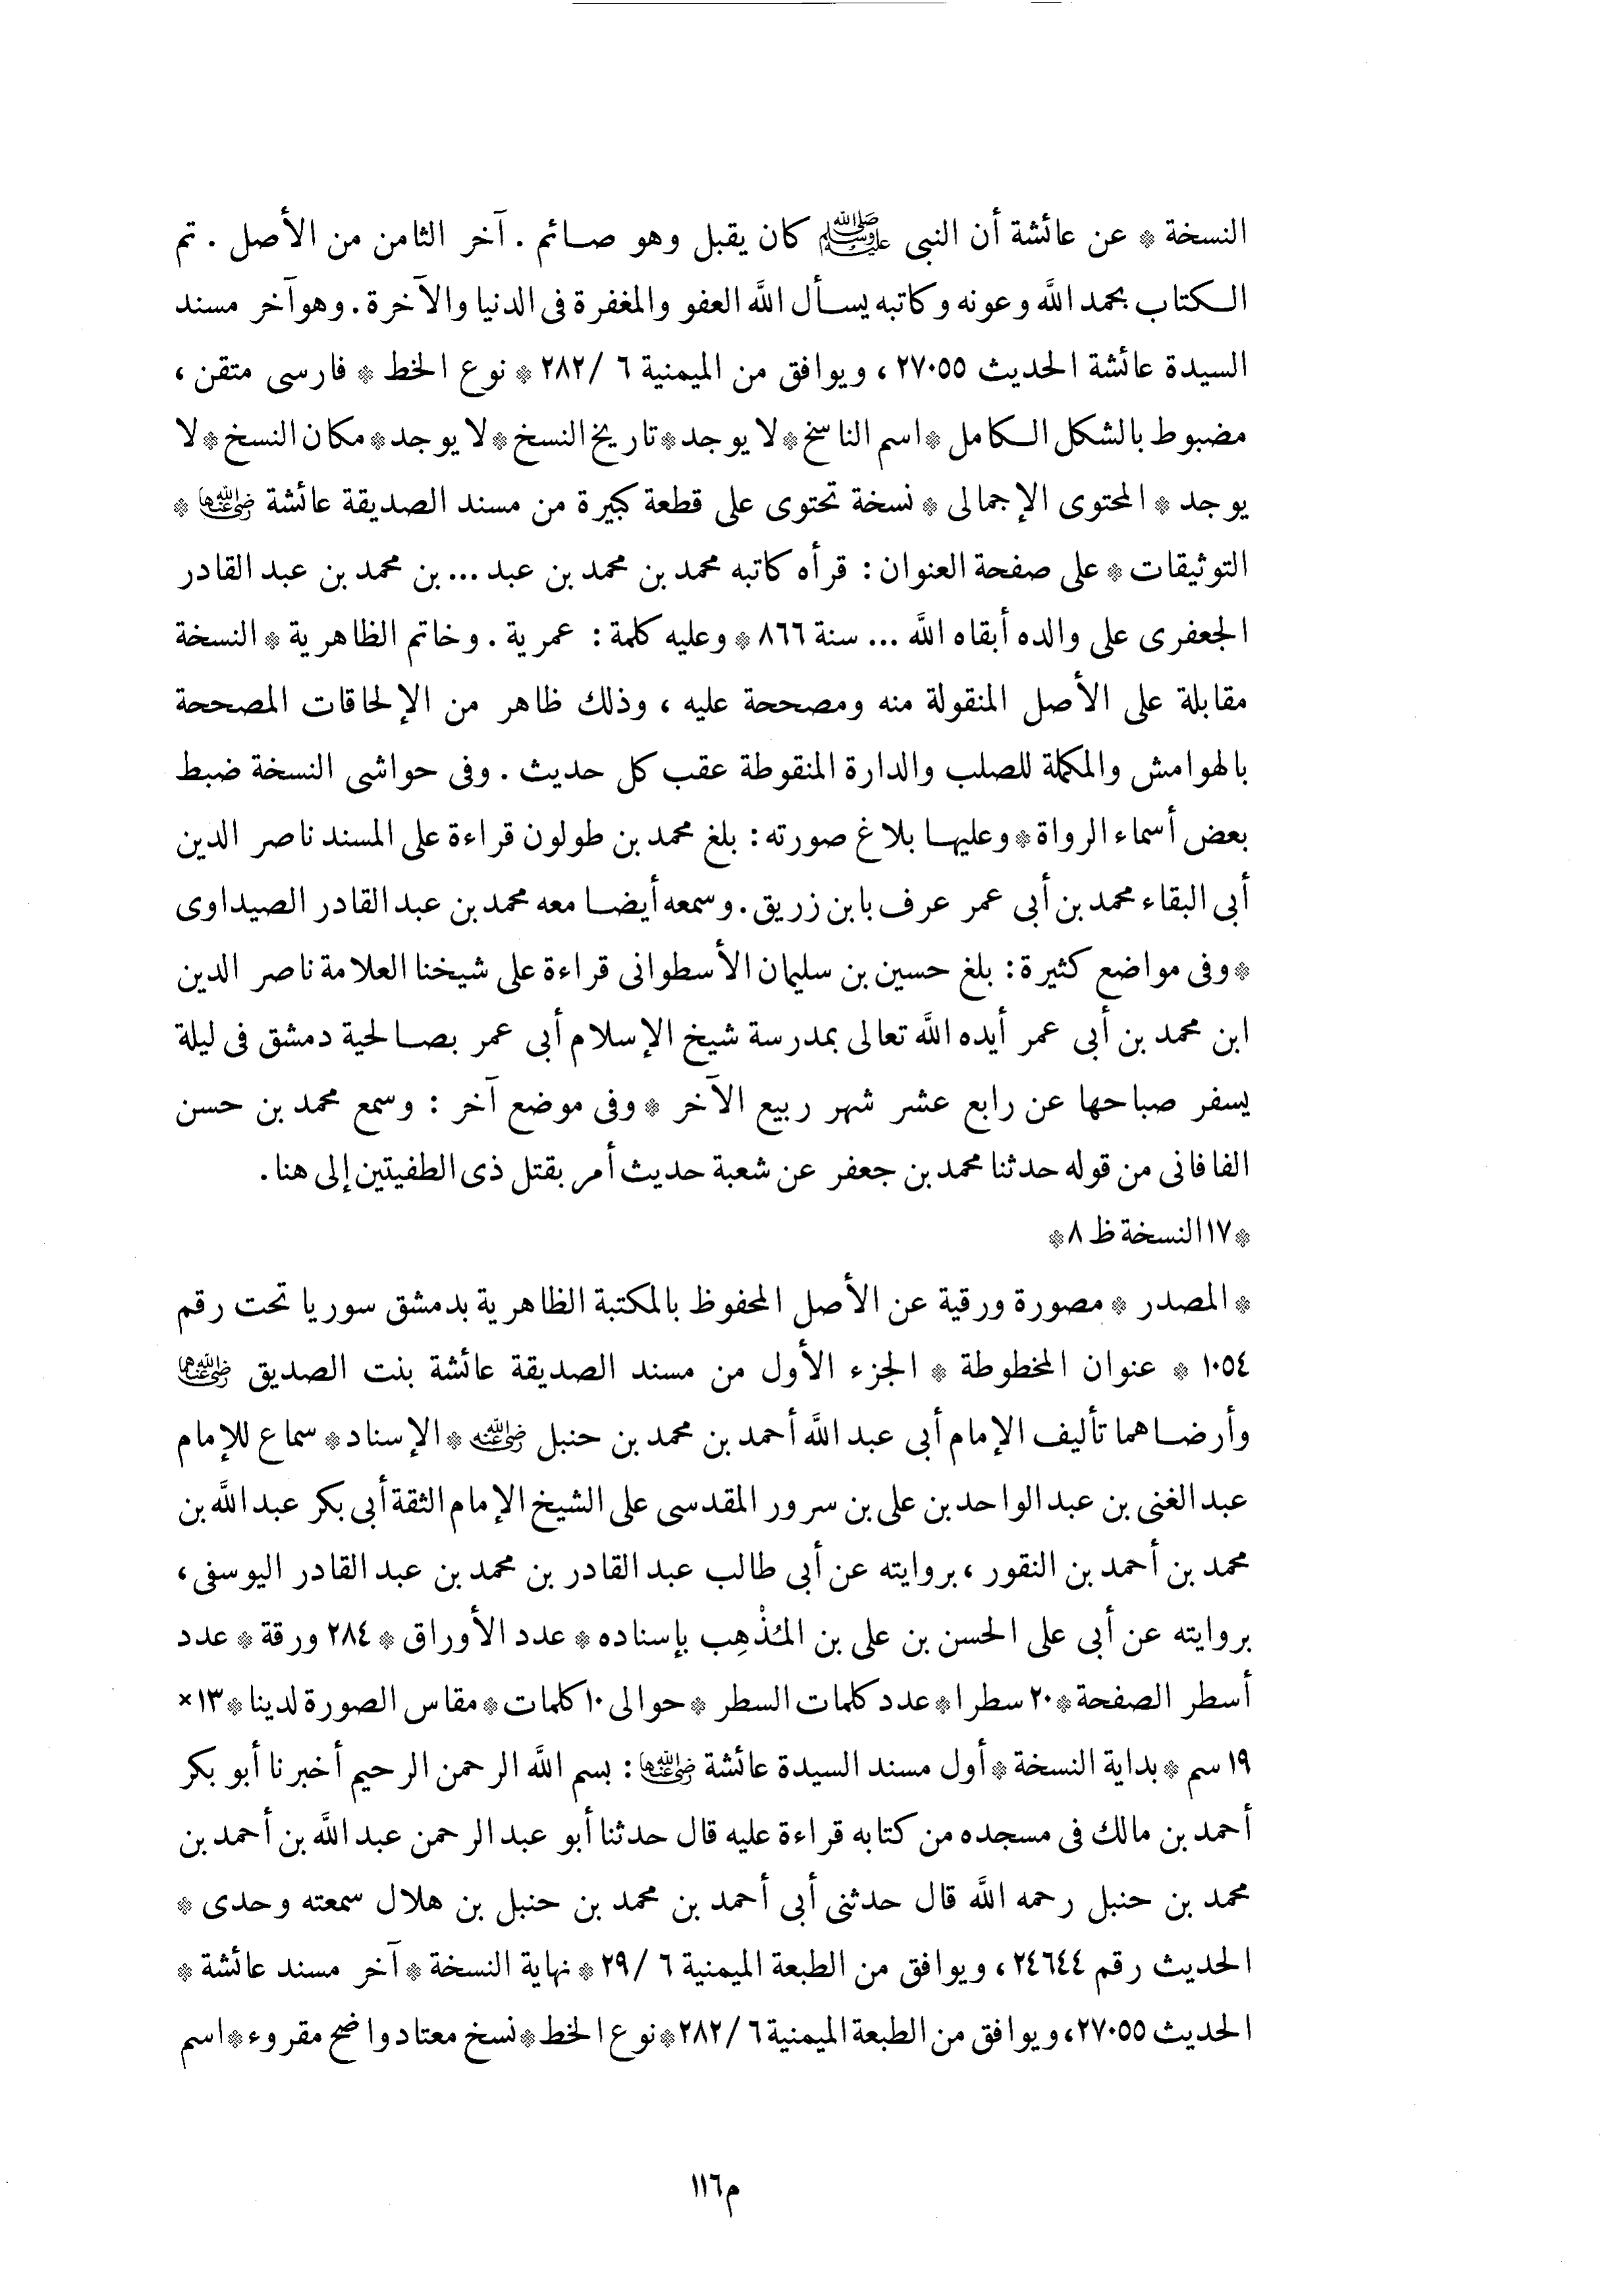 النسخة * عن عائشة أن النبى ﷺ كان يقبل وهو صائم . آخر الثامن من الأصل . تم
الكتاب بحمد الله وعونه وكاتبه يسأل الله العفو والمغفرة فى الدنيا والآخرة . وهو آخر مسند
السيدة عائشة الحديث ٢٧٠٥٥ ، ويوافق من الميمنية ٦ /٢٨٢ * نوع الخط * فارسى متقن ،
مضبوط بالشكل الكامل * اسم الناسخ * لا يوجد * تاريخ النسخ * لا يوجد * مكان النسخ * لا
يوجد * المحتوى الإجمالى * نسخة تحتوى على قطعة كبيرة من مسند الصديقة عائشة رضي الله عنها *
التوثيقات * على صفحة العنوان : قرأه كاتبه محمد بن محمد بن عبد ... بن محمد بن عبد القادر
الجعفرى على والده أبقاه الله ... سنة ٨٦٦ * وعليه كلمة : عمرية . وخاتم الظاهرية * النسخة
مقابلة على الأصل المنقولة منه ومصححة عليه ، وذلك ظاهر من الإلحاقات المصححة
بالهوامش والمكملة للصلب والدارة المنقوطة عقب كل حديث . وفى حواشى النسخة ضبط
بعض أسماء الرواة * وعليها بلاغ صورته : بلغ محمد بن طولون قراءة على المسند ناصر الدين
أبى البقاء محمد بن أبى عمر عرف بابن زريق . وسمعه أيضا معه محمد بن عبد القادر الصيداوى
* وفى مواضع كثيرة : بلغ حسين بن سليمان الأسطوانى قراءة على شيخنا العلامة ناصر الدين
ابن محمد بن أبى عمر أيده الله تعالى بمدرسة شيخ الإسلام أبى عمر بصالحية دمشق فى ليلة
يسفر صباحها عن رابع عشر شهر ربيع الآخر * وفى موضع آخر : وسمع محمد بن حسن
الفافانى من قوله حدثنا محمد بن جعفر عن شعبة حديث أمر بقتل ذى الطفيتين إلى هنا .
* ١٧ النسخة ظ ٨ *
* المصدر * مصورة ورقية عن الأصل المحفوظ بالمكتبة الظاهرية بدمشق سوريا تحت رقم
١٠٥٤ * عنوان المخطوطة * الجزء الأول من مسند الصديقة عائشة بنت الصديق رضي الله عنهما
وأرضاهما تأليف الإمام أبى عبد الله أحمد بن محمد بن حنبل رضي الله عنه * الإسناد * سماع للإمام
عبد الغنى بن عبد الواحد بن على بن سرور المقدسى على الشيخ الإمام الثقة أبى بكر عبد الله بن
محمد بن أحمد بن النقور ، بروايته عن أبى طالب عبد القادر بن محمد بن عبد القادر اليوسفى ،
بروايته عن أبى على الحسن بن على بن المُذْهِب بإسناده * عدد الأوراق * ٢٨٤ ورقة * عدد
أسطر الصفحة * ٢٠ سطرا * عدد كلمات السطر * حوالى ١٠ كلمات * مقاس الصورة لدينا * ١٣ ×
١٩ سم * بداية النسخة * أول مسند السيدة عائشة رضي الله عنها : بسم الله الرحمن الرحيم أخبرنا أبو بكر
أحمد بن مالك فى مسجده من كتابه قراءة عليه قال حدثنا أبو عبد الرحمن عبد الله بن أحمد بن
محمد بن حنبل رحمه الله قال حدثنى أبى أحمد بن محمد بن حنبل بن هلال سمعته وحدى *
الحديث رقم ٢٤٦٤٤ ، ويوافق من الطبعة الميمنية ٦ /٢٩ * نهاية النسخة * آخر مسند عائشة *
الحديث ٢٧٠٥٥ ، ويوافق من الطبعة الميمنية ٦ /٢٨٢ * نوع الخط * نسخ معتاد واضح مقروء * اسم
م١١٦